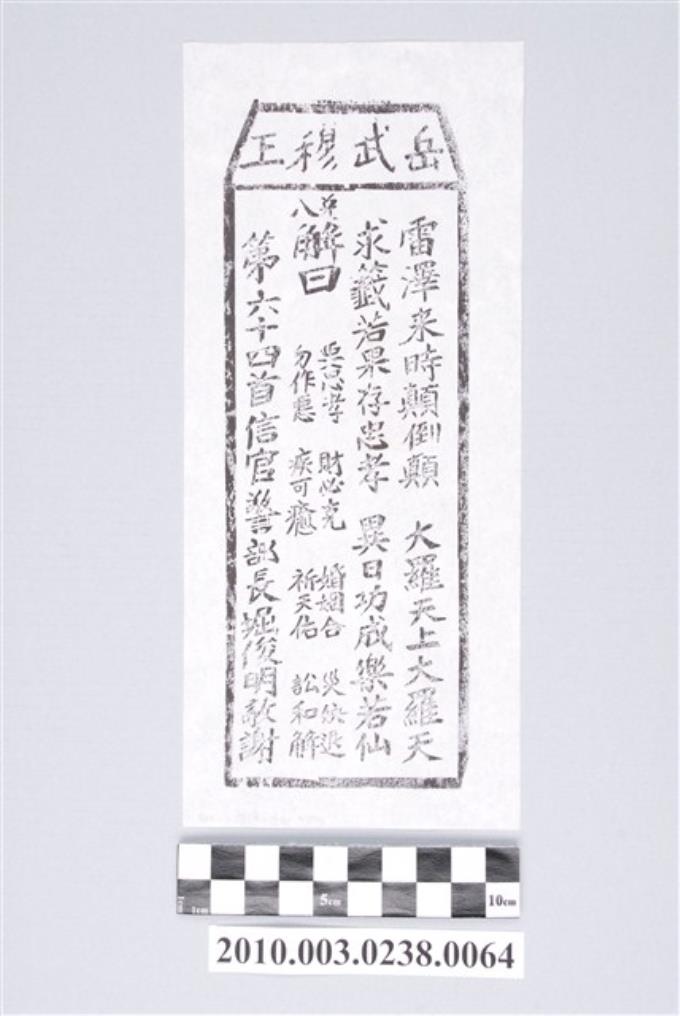 岳武穆王
雷澤来時顛倒顛 大羅天上大羅天
求籤若果存忠孝 異日功成樂若仙
解曰
思忠孝 財必充 婚姻合 災侯退
八 勿作慝 疾可癒 祈天佑 訟和解
第六十四首信官警部長堀俊明敬謝
5cm
10cm
1cm
2010.003.0238.0064